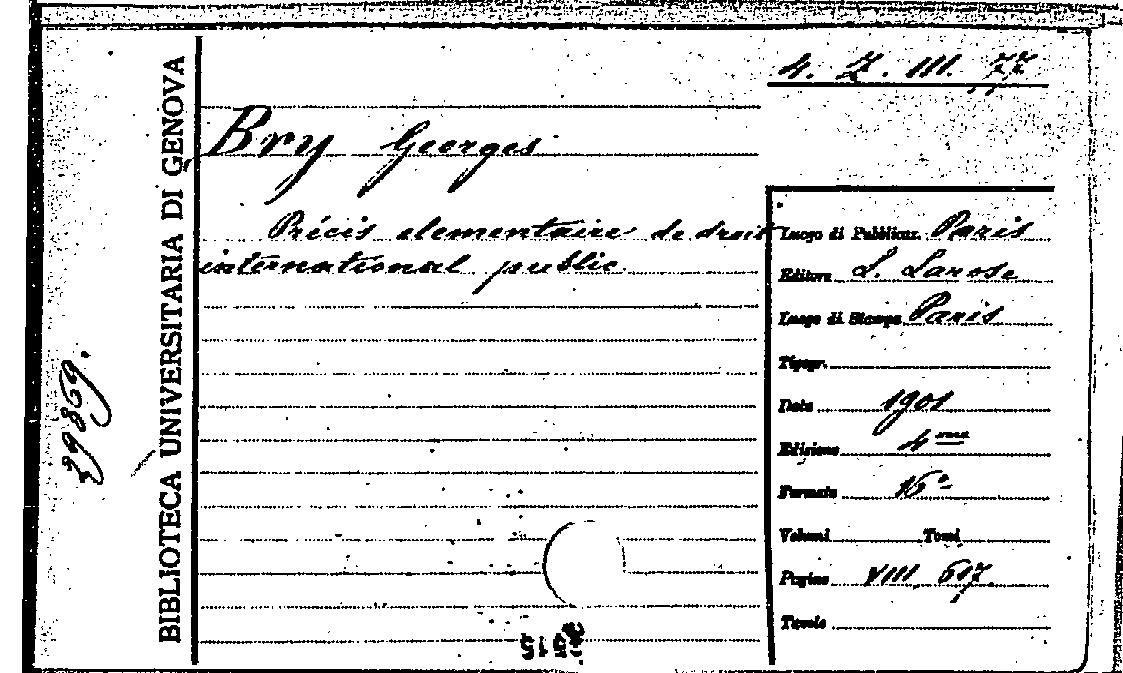 4. Z. III. 77
BIBLIOTECA UNIVERSITARIA DI GENOVA
39869.
Bry Georges
Précis elementaire de droit
international public
Luogo di Pubblicaz. Paris
Editore L. Larose
Luogo di Stampa Paris
Tipogr.
Data 1901
Edizione 4me
Formato 16°
Volumi Tomi
Pagine VIII. 617.
Tavole